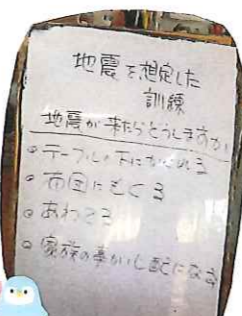 地震を想定した
訓練
地震が来たらどうしますか
テーブルの下にかくれる
布団にもぐる
あわてる
家族の事がしんぱいになる